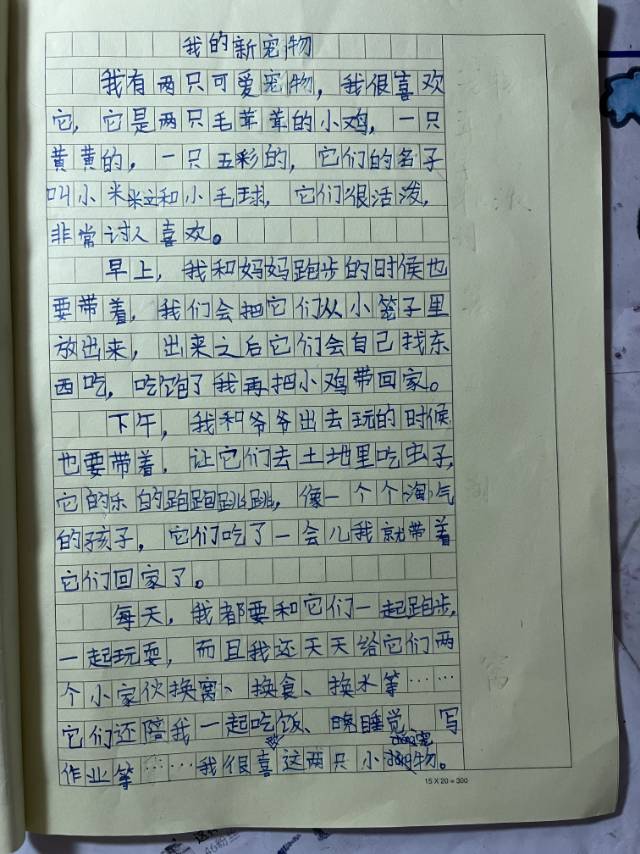 我的新宠物
我有两只可爱宠物，我很喜欢
它，它是两只毛茸茸的小鸡，一只
黄黄的，一只五彩的，它们的名子
叫小米粒和小毛球，它们很活泼，
非常讨人喜欢。
早上，我和妈妈跑步的时候也
要带着，我们会把它们从小笼子里
放出来，出来之后它们会自己找东
西吃，吃饱了我再把小鸡带回家。
下午，我和爷爷出去玩的时候
也要带着，让它们去土地里吃虫子，
它的乐的跑跑跳跳，像一个个淘气
的孩子，它们吃了一会儿我就带着
它们回家了。
每天，我都要和它们一起跑步，
一起玩耍，而且我还天天给它们两
个小家伙换窝、换食、换水等……
它们还陪我一起吃饭、晚睡觉、写
作业等……我很喜欢这两只小宠物。
15×20=300